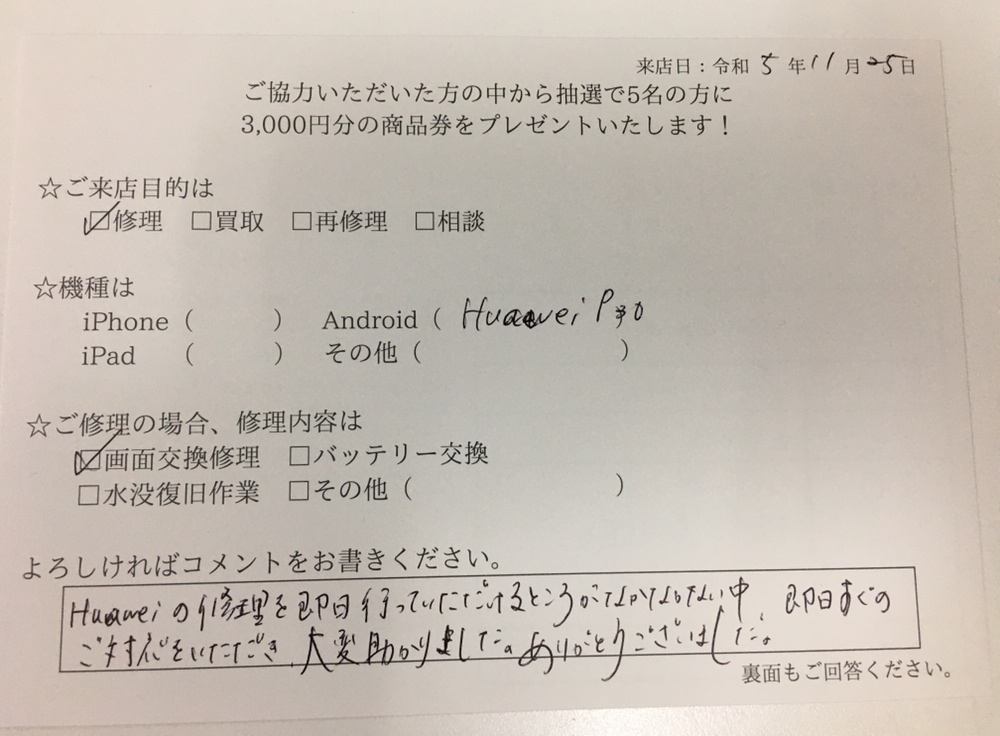 来店日：令和 5 年 11 月 25 日
ご協力いただいた方の中から抽選で5名の方に
3,000円分の商品券をプレゼントいたします！
☆ご来店目的は
☑修理 □買取 □再修理 □相談
☆機種は
iPhone（ ） Android（ Huawei P30
iPad （ ） その他（ ）
☆ご修理の場合、修理内容は
☑画面交換修理 □バッテリー交換
□水没復旧作業 □その他（ ）
よろしければコメントをお書きください。
Huaweiの修理を即日行っていただけるところがなかなかない中、即日すぐの
ご対応をいただき、大変助かりました。ありがとうございました。
裏面もご回答ください。